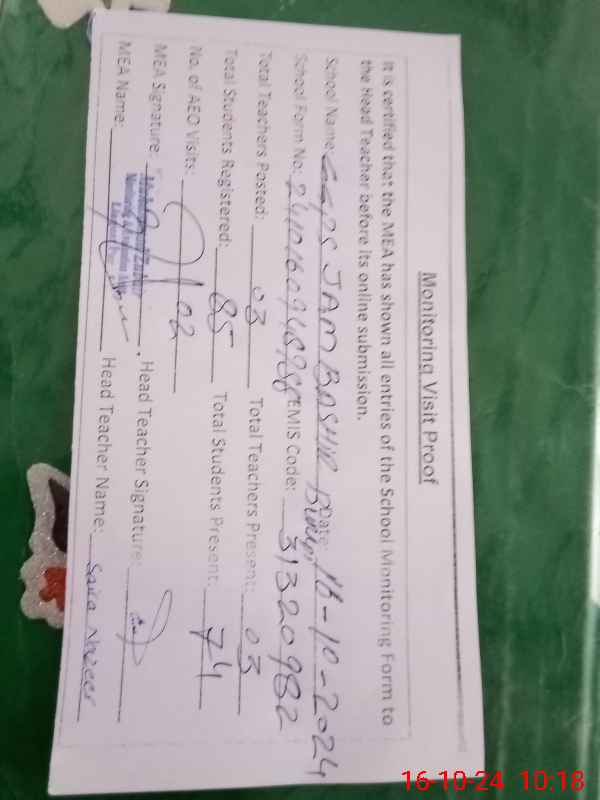 Monitoring Visit Proof
It is certified that the MEA has shown all entries of the School Monitoring Form to
the Head Teacher before its online submission.
School Name: GGPS JAM BASHIR Date: 16-10-2024
School Form No: EMIS Code: 31320982
Total Teachers Posted: 03 Total Teachers Present: 03
Total Students Registered: 85 Total Students Present: 74
No. of AEO Visits: 02
MEA Signature: , Head Teacher Signature:
MEA Name: Head Teacher Name: Saira Nazeer
16-10-24 10:18